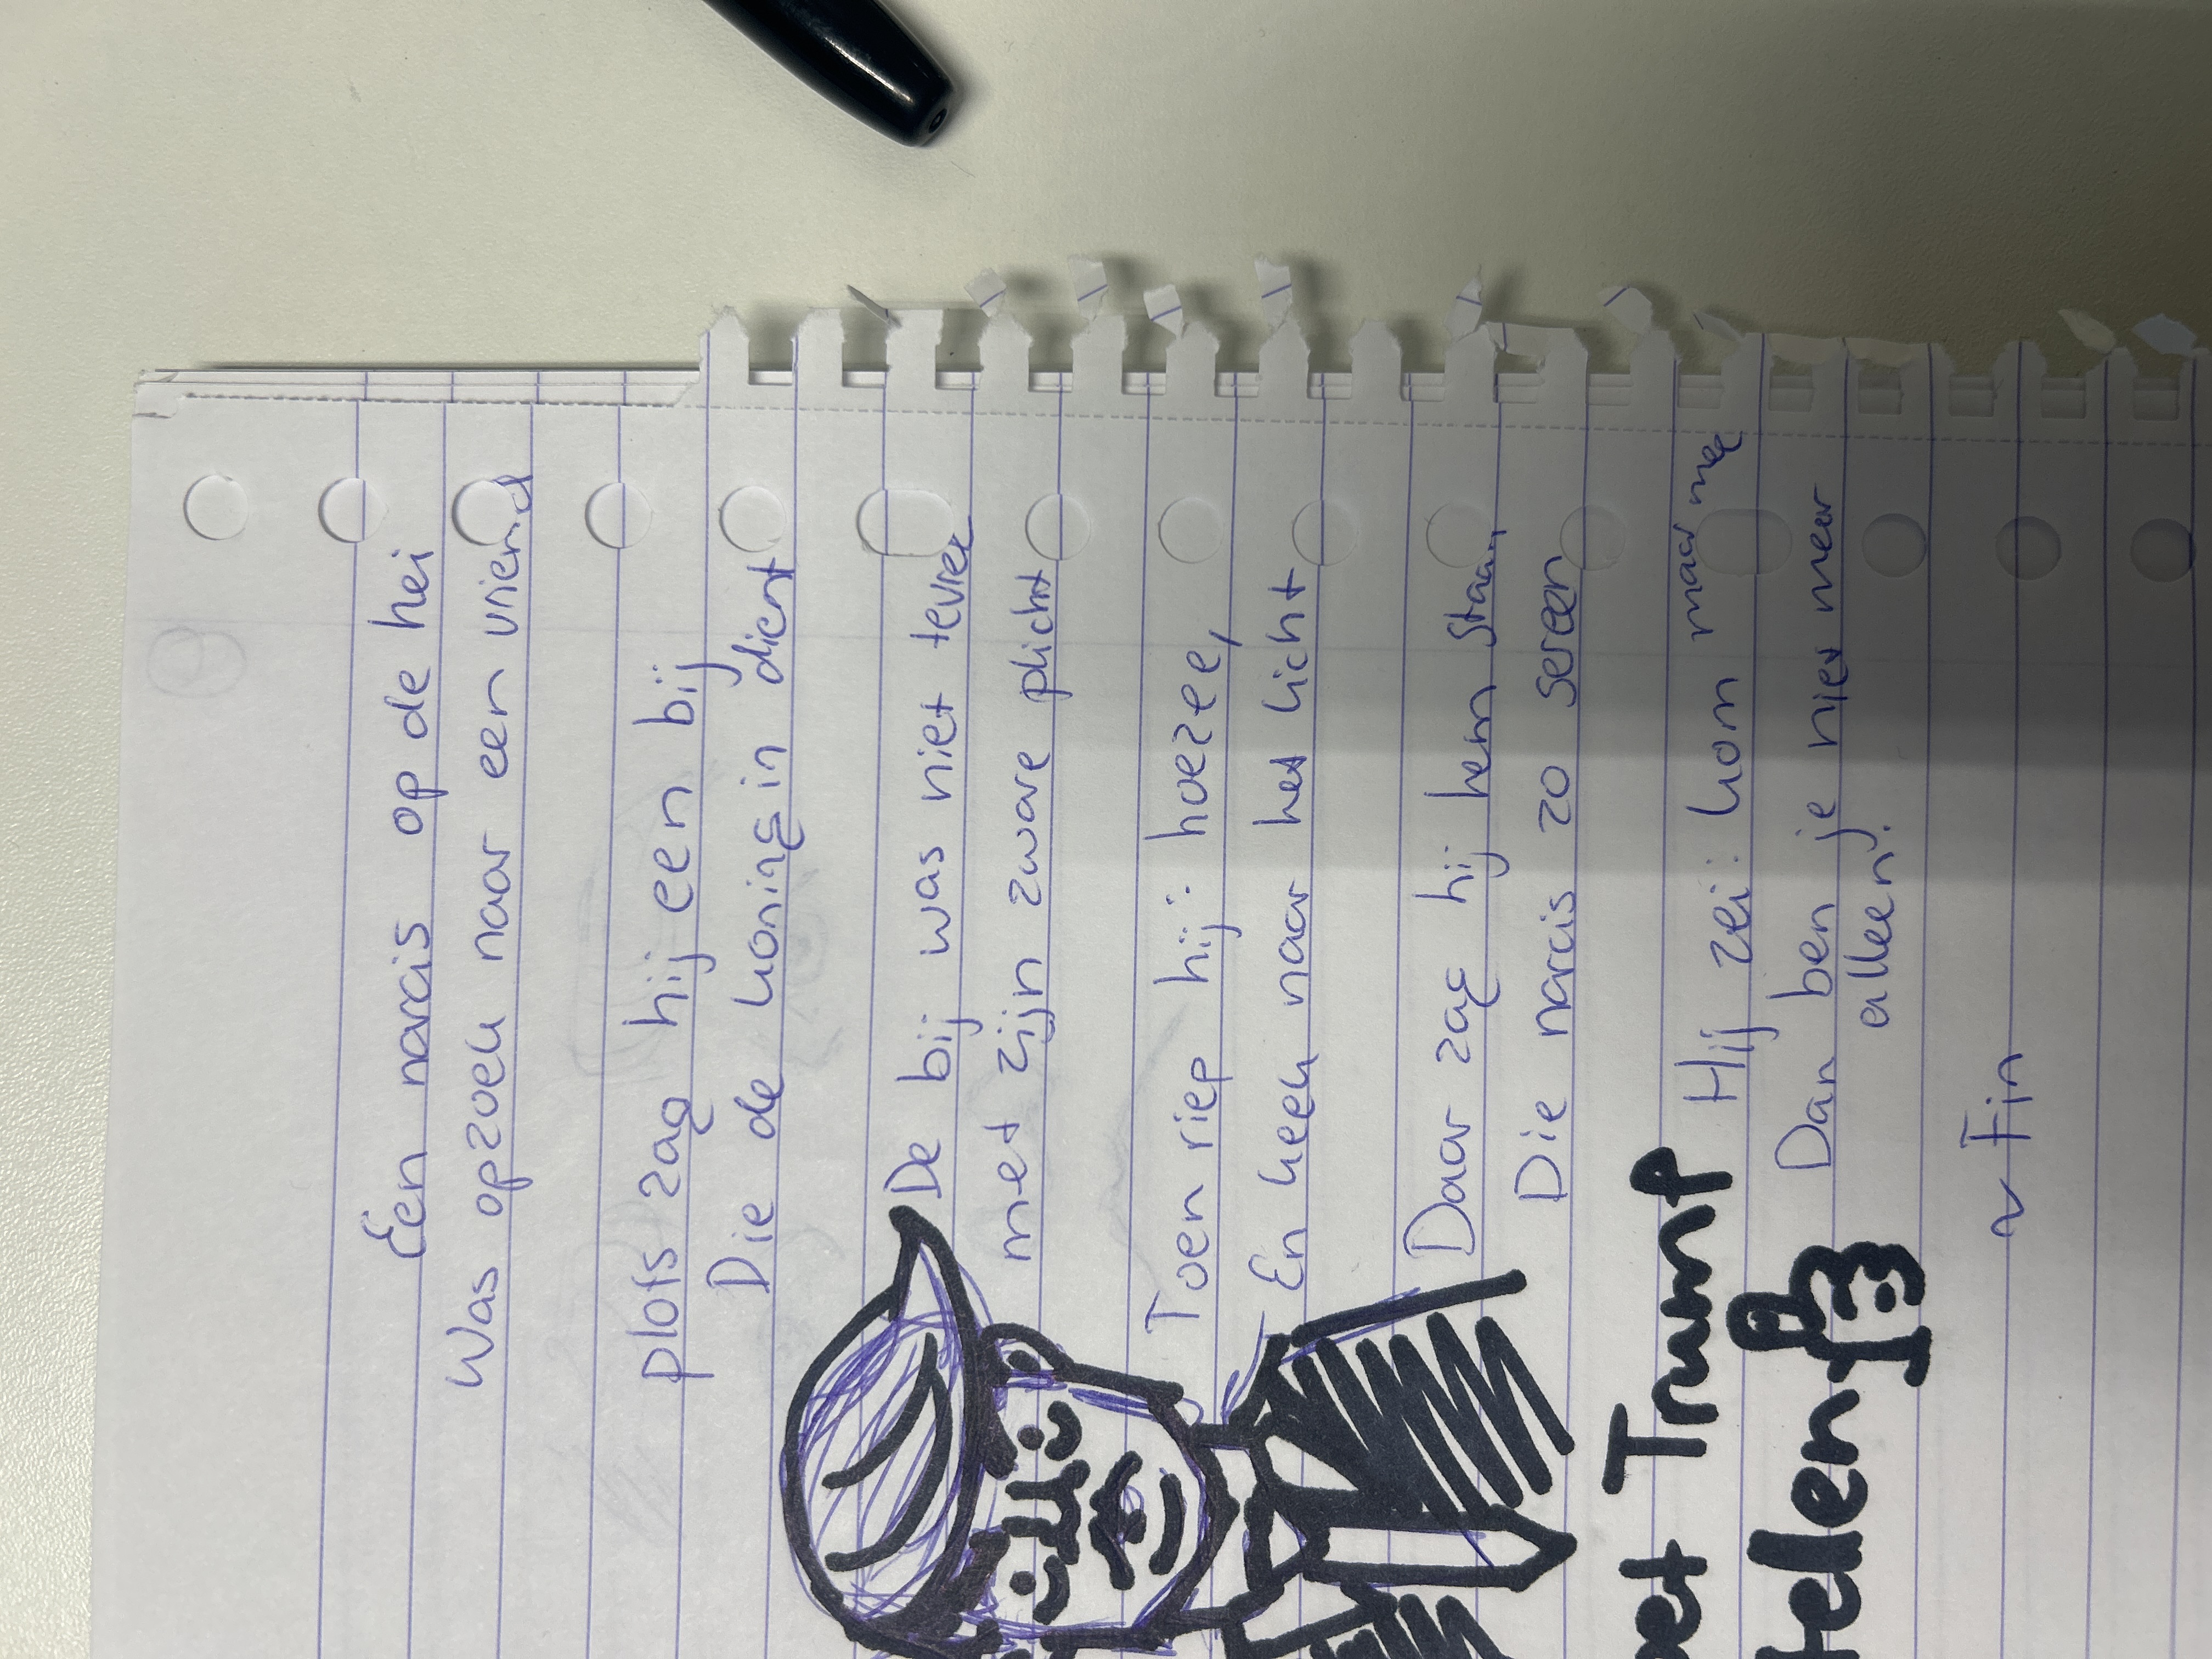 Een narcis op de hei
Was opzoek naar een vriend
plots zag hij een bij
Die de honing in dicht
De bij was niet tevree
met zijn zware plicht
Toen riep hij: hoezee,
En keek naar het licht
Daar zag hij hem staan
Die narcis zo sereen
Hij zei: kom maar mee
Dan ben je niet meer
alleen.
~ Fin
Trump